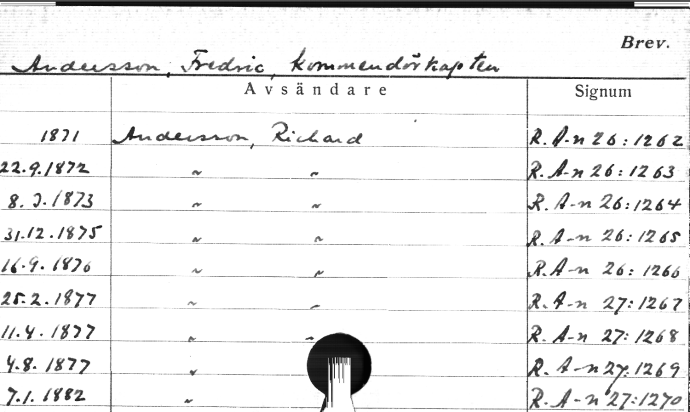 Brev.
Andersson, Fredric, kommendörkapten
Avsändare Signum
1871 Andersson, Richard R. A-n 26:1262
22.9.1872 " " R. A-n 26:1263
8.3.1873 " " R. A-n 26:1264
31.12.1875 " " R. A-n 26:1265
16.9.1876 " " R. A-n 26:1266
25.2.1877 " " R. A-n 27:1267
11.4.1877 " " R. A-n 27:1268
4.8.1877 R. A-n 27.1269
7.1.1882 " R. A-n 27:1270